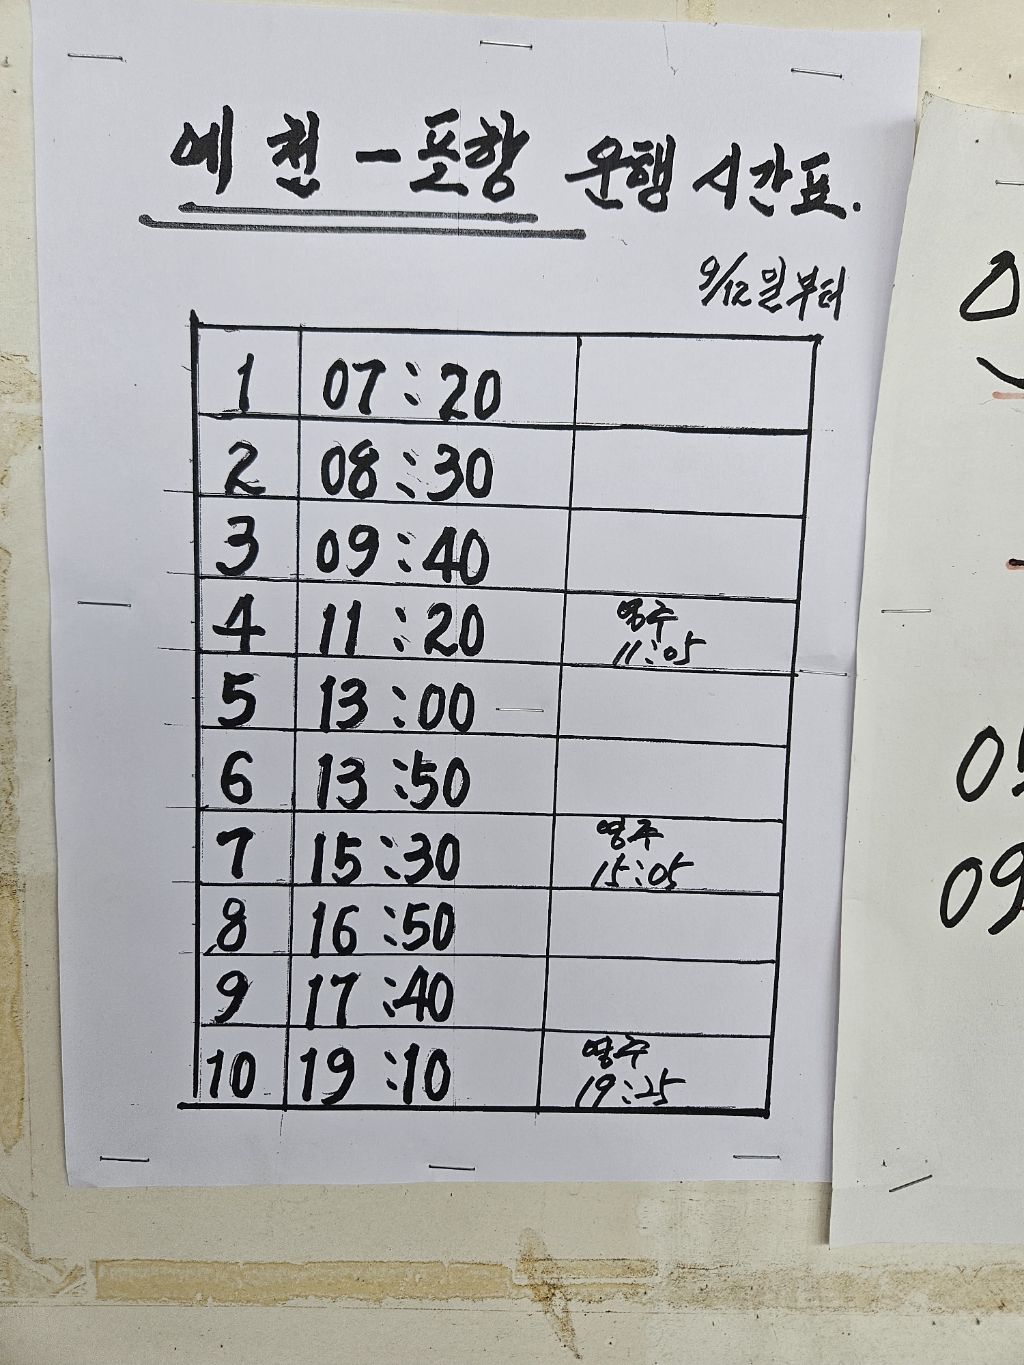 예천-포항 운행 시간표.
9/12일부터
1 07:20
2 08:30
3 09:40
4 11:20 영주 11:05
5 13:00
6 13:50
7 15:30 영주 15:05
8 16:50
9 17:40
10 19:10 영주 19:25
09